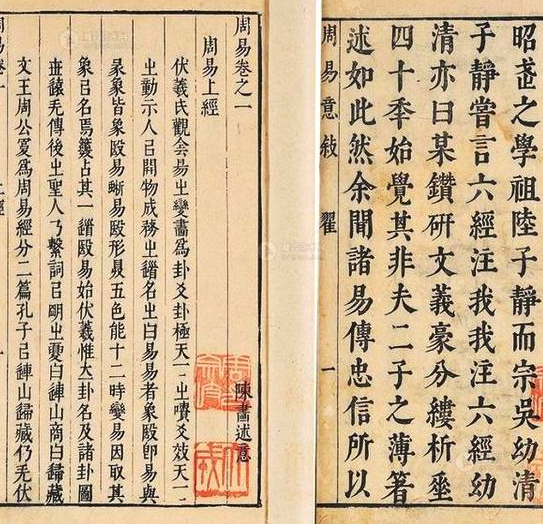 昭武之學祖陸子靜而宗吳幼清
子靜嘗言六經注我我注六經幼
清亦曰某鑽研文義豪分縷析垂
四十秊始覺其非夫二子之薄著
述如此然余聞諸易傳忠信所以
周易意敍 翟 一
周易卷之一
周易上經 陳書述意
伏羲氏觀侌昜㞢變畫爲卦爻卦極天丅㞢嘖爻效天丅
㞢動示人㠯開物成務㞢名㞢曰易易者象叚卽易與
彖象皆象叚易蜥易叚形五色能十二時變易因取其
象㠯名焉占其一叚易始伏羲惟卦名及諸卦圖
无傳後㞢聖人乃繫詞㠯明㞢曰連山商曰歸藏
文王周公爲周易經分二篇孔子㠯連山歸藏仍无伏
周易卷一 上經 一